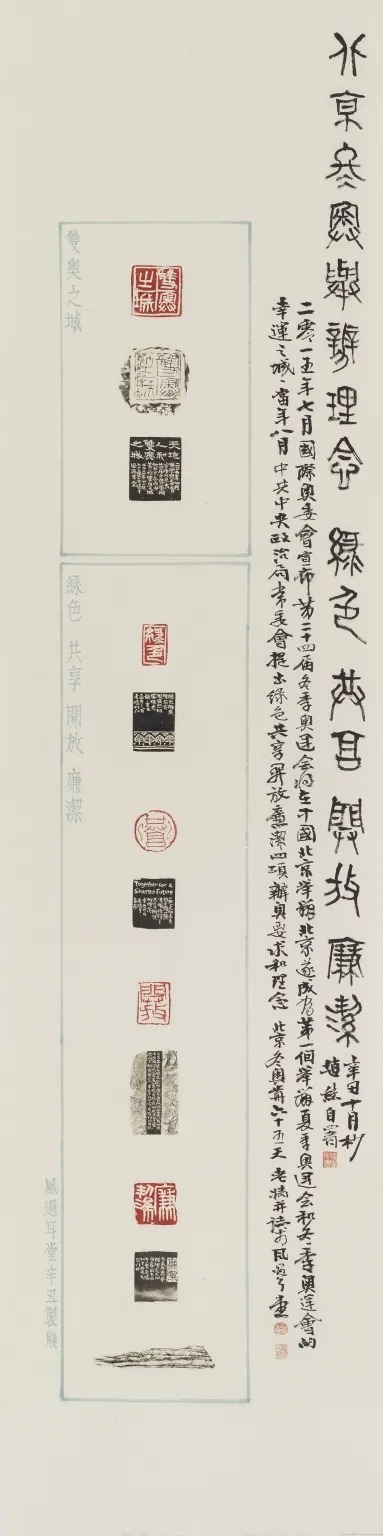 北京冬奧舉辦理念 綠色 共享 開放 廉潔
辛丑十月杪
趙熊自署
二零一五年七月國際奧委會宣布第二十四屆冬季奧運会將在中國北京举辦北京遂成为第一個举辦夏季奧運会和冬季奧運會的
幸運之城當年八月中共中央政治局常委會提出綠色共享開放廉潔四項辦奧要求和理念 北京冬奧前六十五天 老犢并誌於風過耳堂
雙奧之城
雙奧之城
雙奧之城
天地
人和
雙奧
之城
綠色 共享 開放 廉潔
綠色
Together for a
Shared Future
開放
廉潔
風過耳堂辛丑製牋